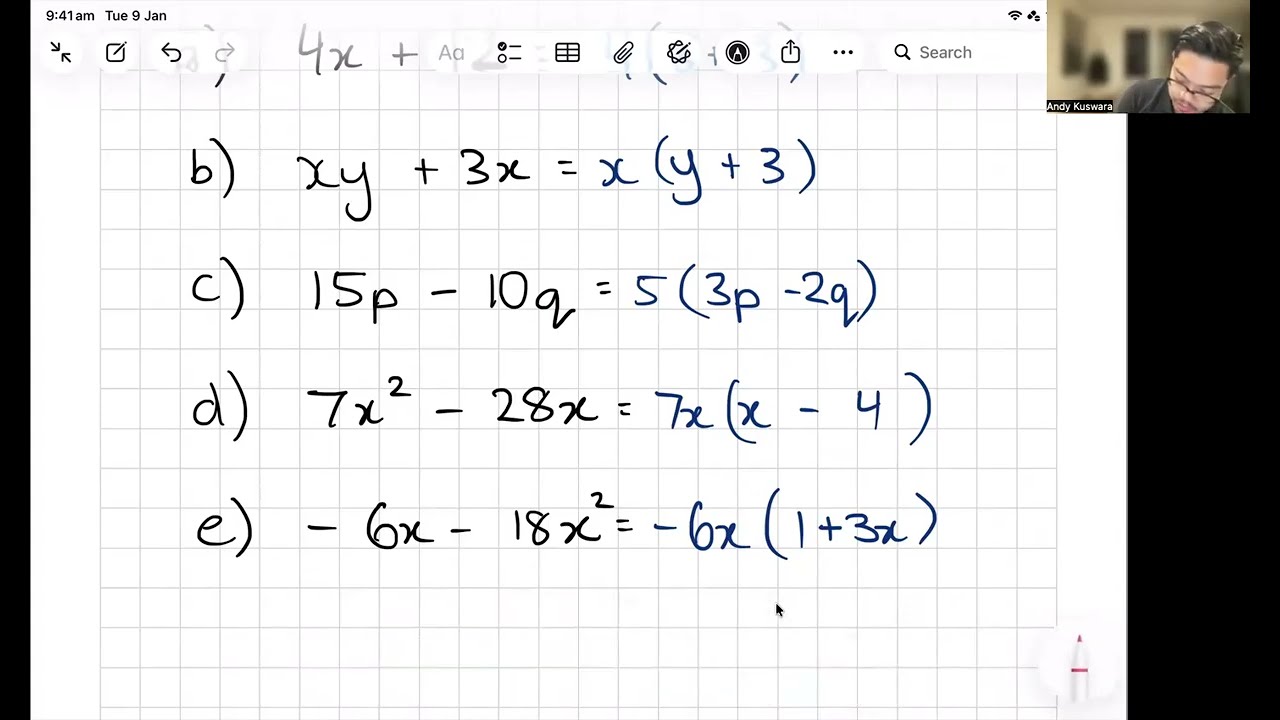 9:41am Tue 9 Jan
Aa
Search
Andy Kuswara
4x +
b) xy + 3x = x(y + 3)
c) 15p - 10q = 5(3p - 2q)
d) 7x² - 28x = 7x(x - 4)
e) - 6x - 18x² = -6x(1 + 3x)